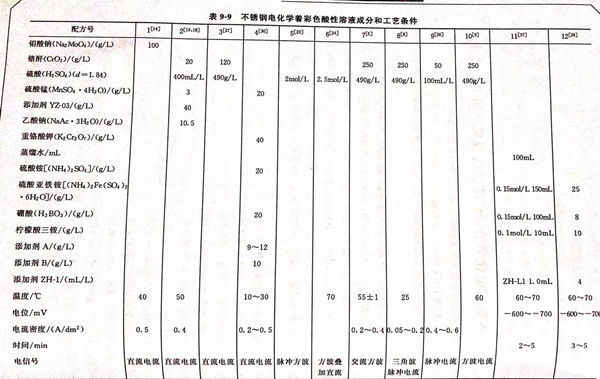 表 9-9 不锈钢电化学着彩色酸性溶液成分和工艺条件
配方号 1[14] 2[13,18] 3[27] 4[30] 5[23] 6[24] 7[5] 8[8] 9[26] 10[2] 11[37] 12[38]
钼酸钠(Na₂MoO₄)/(g/L) 100
铬酐(CrO₃)/(g/L) 20 120 250 250 50 250
硫酸(H₂SO₄)(d=1.84) 400mL/L 490g/L 2mol/L 2.5mol/L 490g/L 490g/L 100mL/L 490g/L
硫酸锰(MnSO₄·4H₂O)/(g/L) 3 20
添加剂 YZ-03/(g/L) 40
乙酸钠(NaAc·3H₂O)/(g/L) 10.5
重铬酸钾(K₂Cr₂O₇)/(g/L) 40
蒸馏水/mL 100mL
硫酸铵[(NH₄)₂SO₄]/(g/L) 20
硫酸亚铁铵[(NH₄)₂Fe(SO₄)₂ 0.15mol/L 150mL 25
·6H₂O]/(g/L)
硼酸(H₃BO₃)/(g/L) 20 0.15mol/L 100mL 8
柠檬酸三铵/(g/L) 0.1mol/L 10mL 10
添加剂 A/(g/L) 9～12
添加剂 B/(g/L) 10
添加剂 ZH-1/(mL/L) ZH-L1 1.0mL 4
温度/℃ 40 50 10～30 70 55±1 25 60 60～70 60～70
电位/mV -600～-700 -600～-700
电流密度/(A/dm²) 0.5 0.4 0.2～0.5 0.2～0.4 0.05～0.2 0.4～0.6
时间/min 2～5 3～5
电信号 直流电流 直流电流 直流电流 直流电流 脉冲方波 方波叠 交流方波 三角波 脉冲电流 方波电流
加直流 脉冲电流